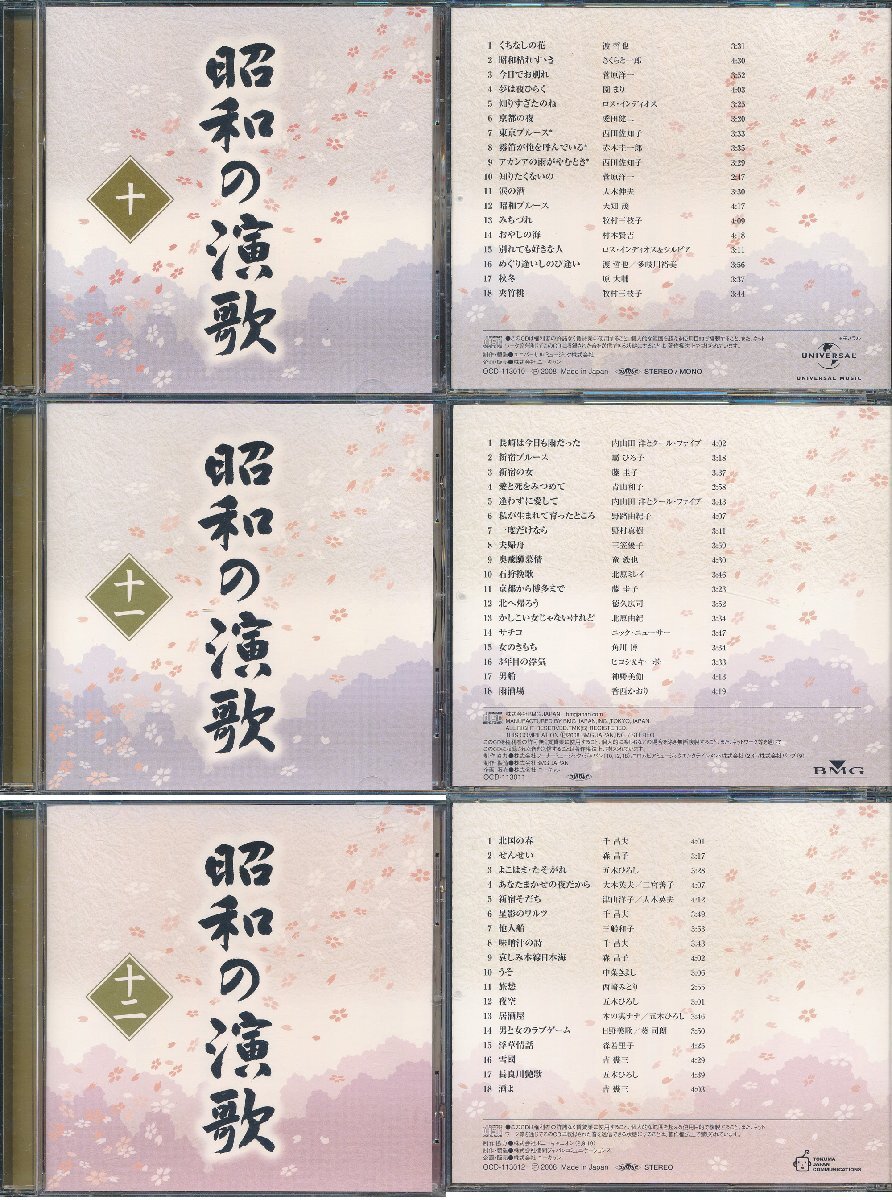 昭和の演歌
十
1 くちなしの花 渡 哲也 3:31
2 昭和枯れすゝき さくらと一郎 4:30
3 今日でお別れ 菅原洋一 3:52
4 夢は夜ひらく 園 まり 4:03
5 知りすぎたのね ロス・インディオス 3:25
6 京都の夜 愛田健二 3:20
7 東京ブルース* 西田佐知子 3:33
8 霧笛が俺を呼んでいる* 赤木圭一郎 3:35
9 アカシアの雨がやむとき* 西田佐知子 3:29
10 知りたくないの 菅原洋一 2:47
11 涙の酒 大木伸夫 3:30
12 昭和ブルース 天知 茂 4:17
13 みちづれ 牧村三枝子 4:09
14 おやじの海 村木賢吉 4:18
15 別れても好きな人 ロス・インディオス&シルビア 3:11
16 めぐり逢いしのび逢い 渡 哲也/多岐川裕美 3:56
17 秋冬 原 大輔 3:37
18 夾竹桃 牧村三枝子 3:44
UNIVERSAL
UNIVERSAL MUSIC
OCD-113010 Ⓟ2008 Made in Japan STEREO/MONO
昭和の演歌
十一
1 長崎は今日も雨だった 内山田 洋とクール・ファイブ 4:02
2 新宿ブルース 扇 ひろ子 3:18
3 新宿の女 藤 圭子 3:37
4 愛と死をみつめて 青山和子 2:58
5 逢わずに愛して 内山田 洋とクール・ファイブ 3:43
6 私が生まれて育ったところ 野路由紀子 4:07
7 一度だけなら 野村真樹 3:41
8 夫婦舟 三笠優子 3:50
9 奥飛騨慕情 竜 鉄也 4:30
10 石狩挽歌 北原ミレイ 3:46
11 京都から博多まで 藤 圭子 3:23
12 北へ帰ろう 徳久広司 3:52
13 かしこい女じゃないけれど 北原由紀 3:34
14 サチコ ニック・ニューサー 3:47
15 女のきもち 角川 博 3:34
16 3年目の浮気 ヒロシ&キーボー 3:33
17 男船 神野美伽 4:13
18 雨酒場 香西かおり 4:19
MANUFACTURED BY BMG JAPAN, INC., TOKYO, JAPAN
OCD-113011
BMG
昭和の演歌
十二
1 北国の春 千 昌夫 4:01
2 せんせい 森 昌子 3:17
3 よこはま・たそがれ 五木ひろし 3:28
4 あなたまかせの夜だから 大木英夫/二宮善子 4:07
5 新宿そだち 津山洋子/大木英夫 4:12
6 星影のワルツ 千 昌夫 3:49
7 他人船 三船和子 3:53
8 味噌汁の詩 千 昌夫 3:43
9 哀しみ本線日本海 森 昌子 4:02
10 うそ 中条きよし 3:06
11 旅愁 西崎みどり 2:55
12 夜空 五木ひろし 3:01
13 居酒屋 木の実ナナ/五木ひろし 3:46
14 男と女のラブゲーム 日野美歌/葵 司朗 3:50
15 浮草情話 森若里子 4:25
16 雪國 吉 幾三 4:29
17 長良川艶歌 五木ひろし 4:39
18 酒よ 吉 幾三 4:03
OCD-113012 Ⓟ2008 Made in Japan STEREO
TOKUMA
JAPAN
COMMUNICATIONS